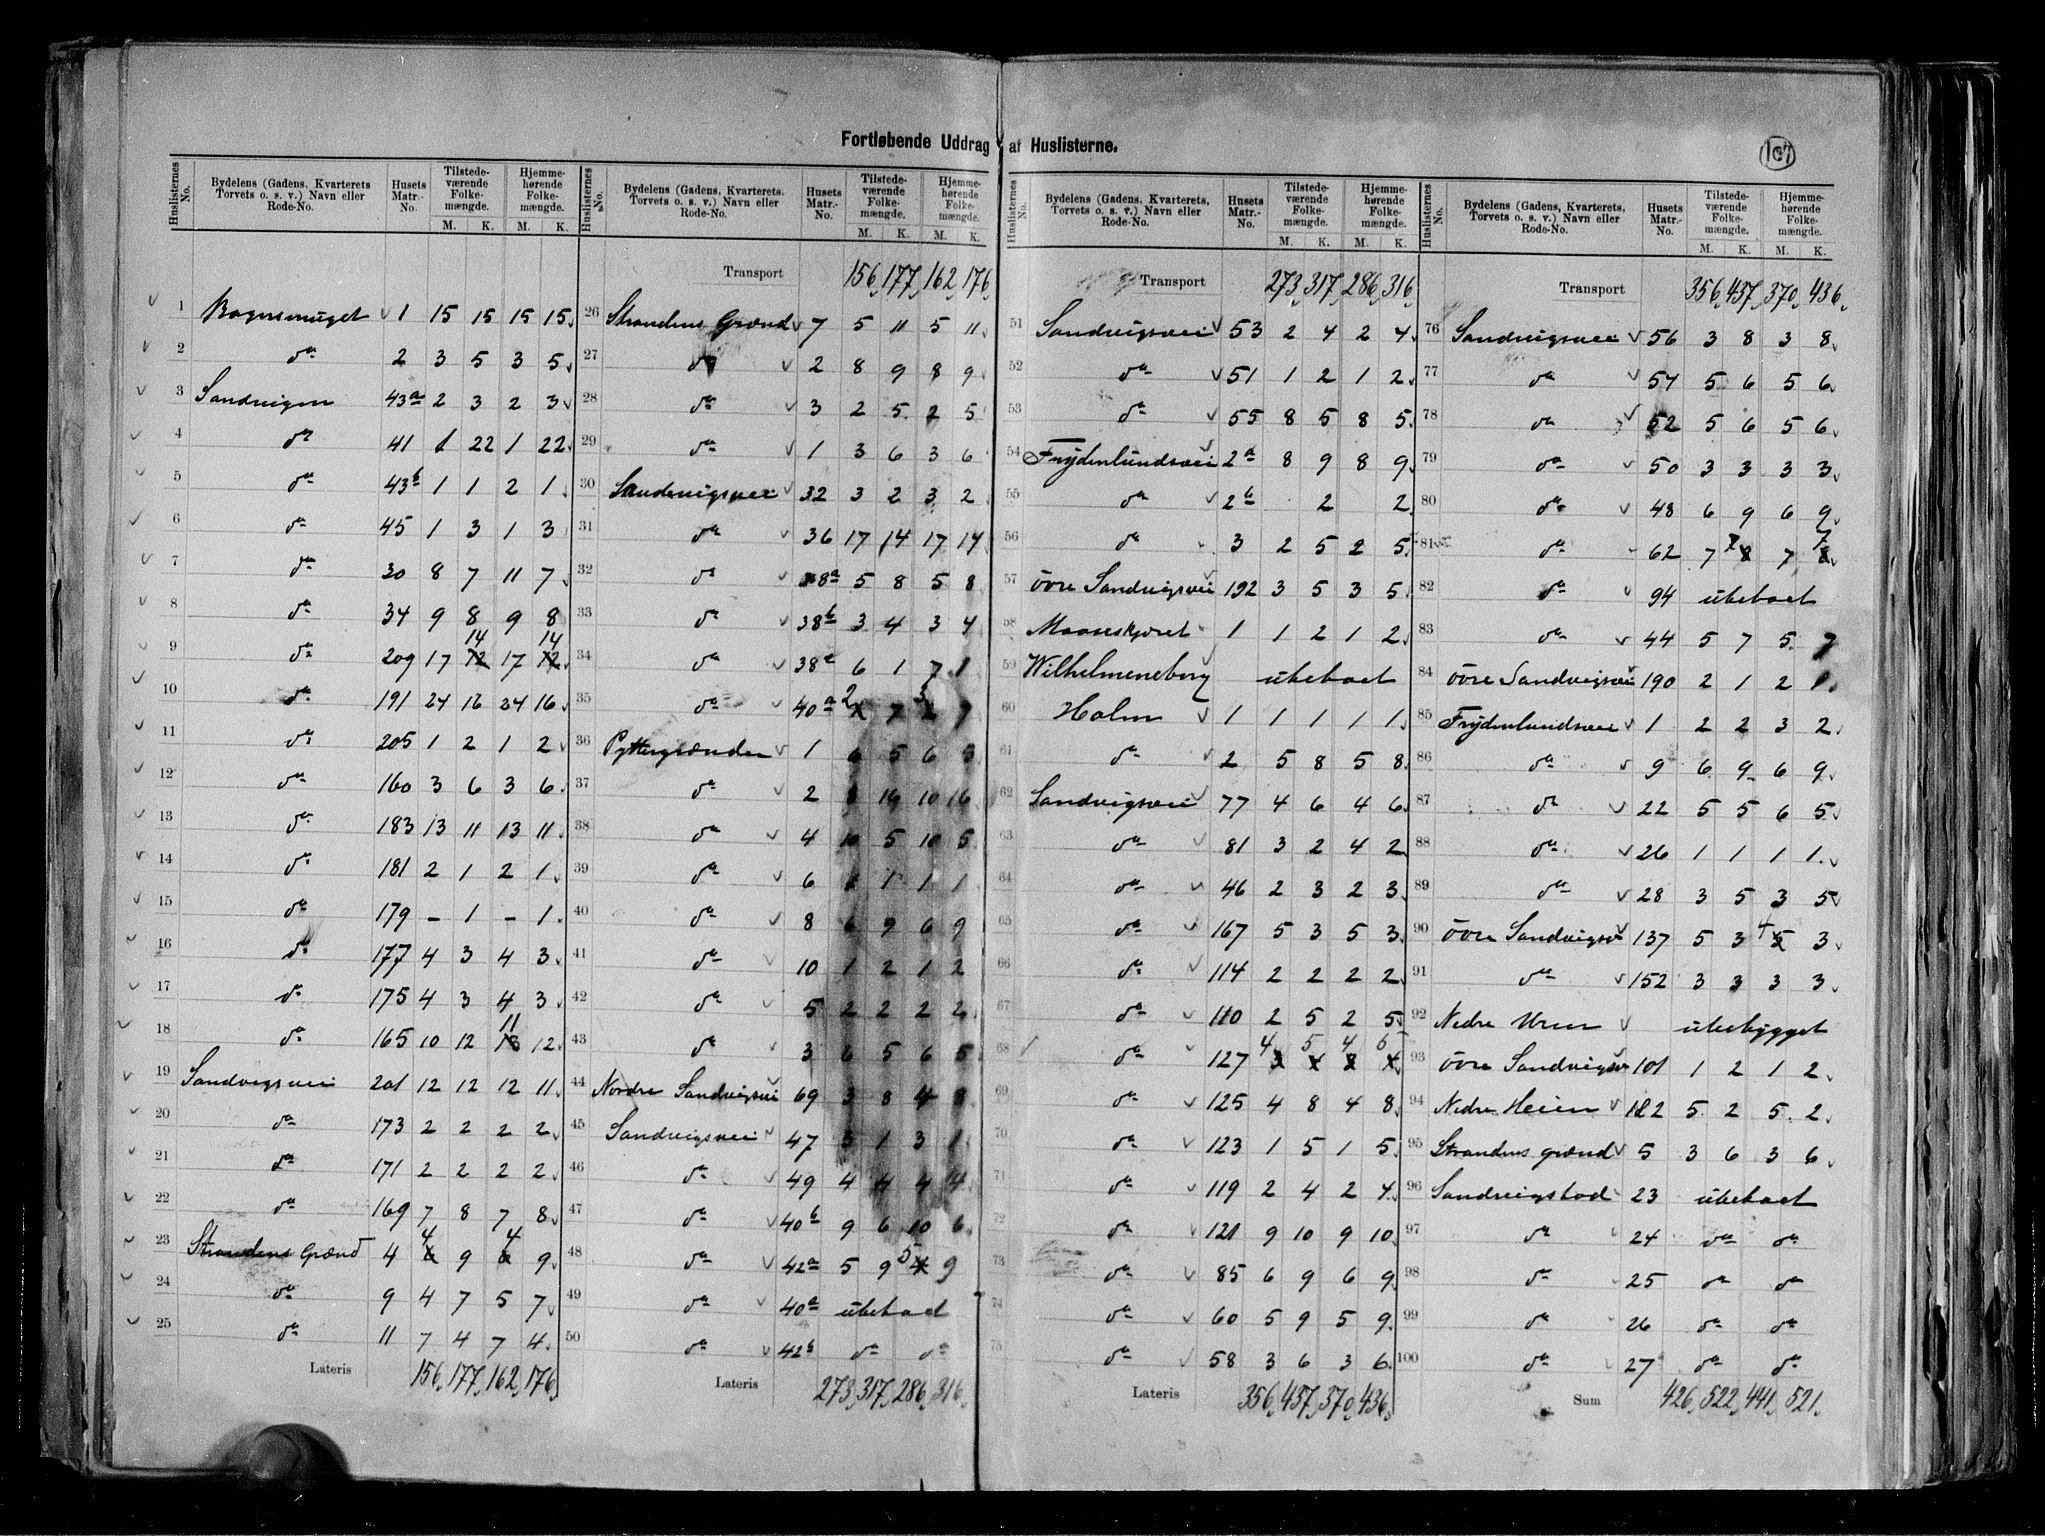 Fortløbende Uddrag af Huslisterne.
107
Huslisternes No. Bydelens (Gadens, Kvarterets Torvets o. s. v.) Navn eller Rode-No. Husets Matr.-No. Tilstede-værende Folke-mængde. Hjemme-hørende Folke-mængde.
M. K. M. K.
1 Bagersmuget 1 15 15 15 15
2 do 2 3 5 3 5
3 Sandvigen 43a 2 3 2 3
4 do 41 1 22 1 22
5 do 43b 1 1 2 1
6 do 45 1 3 1 3
7 do 30 8 7 11 7
8 do 34 9 8 9 8
9 do 209 17 14 17 14
10 do 191 24 16 24 16
11 do 205 1 2 1 2
12 do 160 3 6 3 6
13 do 183 13 11 13 11
14 do 181 2 1 2 1
15 do 179 – 1 – 1
16 do 177 4 3 4 3
17 do 175 4 3 4 3
18 do 165 10 12 11 12
19 Sandvigsvei 201 12 12 12 11
20 do 173 2 2 2 2
21 do 171 2 2 2 2
22 do 169 7 8 7 8
23 Strandens Grænd 4 4 9 4 9
24 do 9 4 7 5 7
25 do 11 7 4 7 4
Lateris 156 177 162 176
Huslisternes No. Bydelens (Gadens, Kvarterets, Torvets o. s. v.) Navn eller Rode-No. Husets Matr.-No. Tilstede-værende Folke-mængde. Hjemme-hørende Folke-mængde.
M. K. M. K.
Transport 156 177 162 176
26 Strandens Grænd 7 5 11 5 11
27 do 2 8 9 8 9
28 do 3 2 5 2 5
29 do 1 3 6 3 6
30 Sandvigsvei 32 3 2 3 2
31 do 36 17 14 17 14
32 do 38a 5 8 5 8
33 do 38b 3 4 3 4
34 do 38c 6 1 7 1
35 do 40a 2 7 3 7
36 Pyttergrænden 1 6 5 6 5
37 do 2 16 10 16
38 do 4 10 5 10 5
39 do 6 1 1 1 1
40 do 8 6 9 6 9
41 do 10 1 2 1 2
42 do 5 2 2 2 2
43 do 3 6 5 6 5
44 Nordre Sandvigsvei 69 3 8 4 8
45 Sandvigsvei 47 3 1 3 1
46 do 49 4 4 4 4
47 do 40b 9 6 10 6
48 do 42a 5 9 5 9
49 do 40a ubeboet
50 do 42b do do
Lateris 273 317 286 316
Huslisternes No. Bydelens (Gadens, Kvarterets, Torvets o. s. v.) Navn eller Rode-No. Husets Matr.-No. Tilstede-værende Folke-mængde. Hjemme-hørende Folke-mængde.
M. K. M. K.
Transport 273 317 286 316
51 Sandvigsvei 53 2 4 2 4
52 do 51 1 2 1 2
53 do 55 8 5 8 5
54 Frydenlundsvei 2a 8 9 8 9
55 do 2b 2 2
56 do 3 2 5 2 5
57 övre Sandvigsvei 192 3 5 3 5
58 Maaseskjæret 1 1 2 1 2
59 Wilhelmeneborg ubeboet
60 Holm 1 1 1 1 1
61 do 2 5 8 5 8
62 Sandvigsvei 77 4 6 4 6
63 do 81 3 2 4 2
64 do 46 2 3 2 3
65 do 167 5 3 5 3
66 do 114 2 2 2 2
67 do 110 2 5 2 5
68 do 127 4 5 4 5
69 do 125 4 8 4 8
70 do 123 1 5 1 5
71 do 119 2 4 2 4
72 do 121 9 10 9 10
73 do 85 6 9 6 9
74 do 60 5 9 5 9
75 do 58 3 6 3 6
Lateris 356 437 370 436
Huslisternes No. Bydelens (Gadens, Kvarterets, Torvets o. s. v.) Navn eller Rode-No. Husets Matr.-No. Tilstede-værende Folke-mængde. Hjemme-hørende Folke-mængde.
M. K. M. K.
Transport 356 437 370 436
76 Sandvigsvei 56 3 8 3 8
77 do 54 5 6 5 6
78 do 52 5 6 5 6
79 do 50 3 3 3 3
80 do 48 6 9 6 9
81 do 62 7 7 7 7
82 do 94 ubeboet
83 do 44 5 7 5 7
84 övre Sandvigsvei 190 2 1 2 1
85 Frydenlundsvei 1 2 2 3 2
86 do 9 6 9 6 9
87 do 22 5 5 6 5
88 do 26 1 1 1 1
89 do 28 3 5 3 5
90 övre Sandvigsv 137 5 3 4 3
91 do 152 3 3 3 3
92 Nedre Uren ubebygget
93 övre Sandvigsv 101 1 2 1 2
94 Nedre Heien 182 5 2 5 2
95 Strandens grænd 5 3 6 3 6
96 Sandvigsbod 23 ubeboet
97 do 24 do do
98 do 25 do do
99 do 26 do do
100 do 27 do do
Sum 426 522 441 521